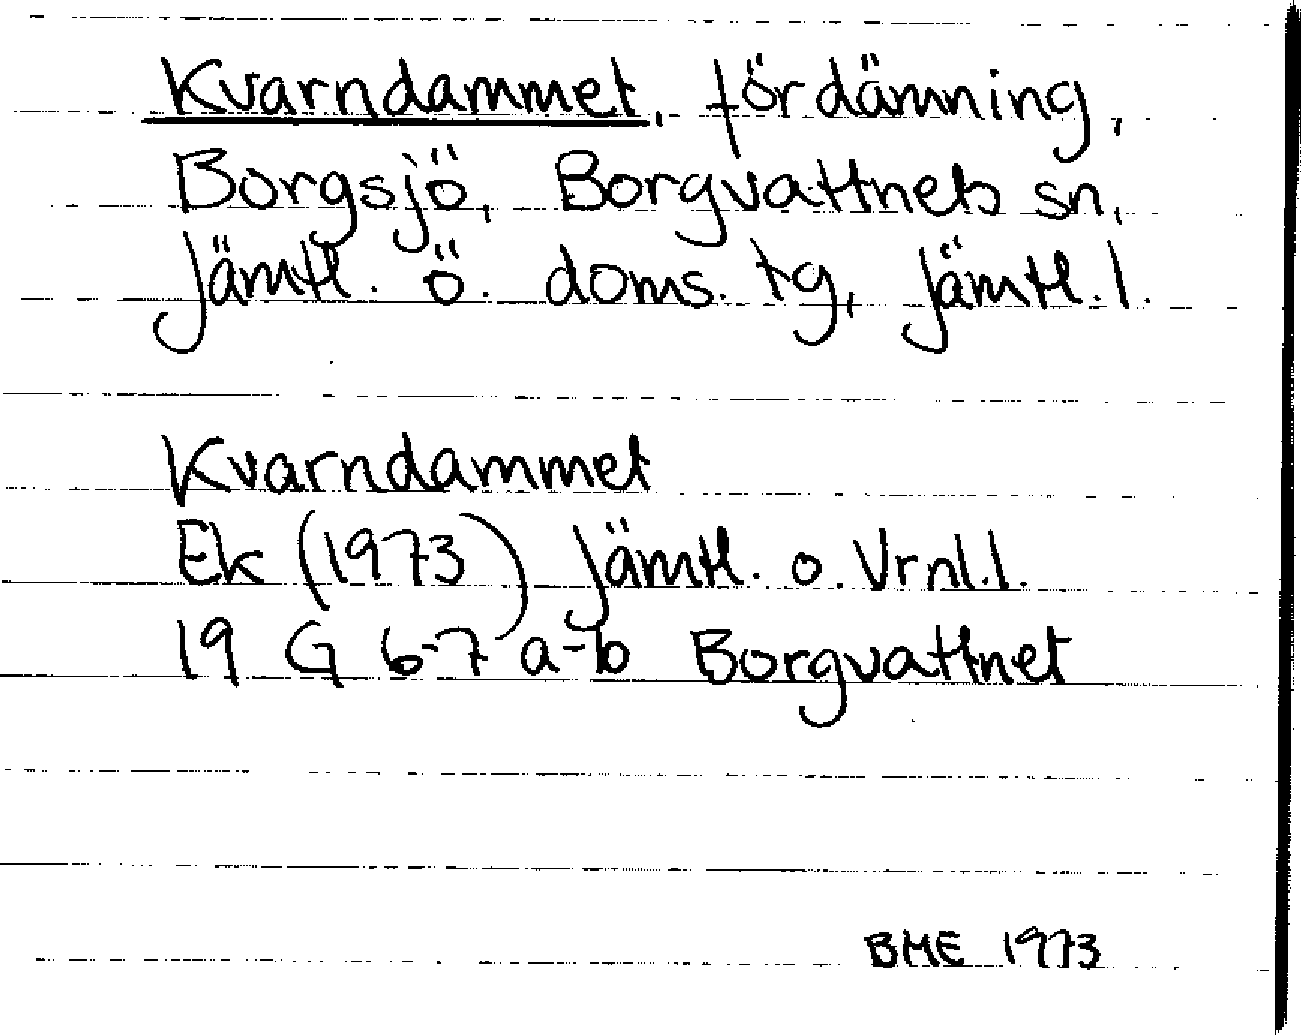 Kvarndammet, fördämning,
Borgsjö, Borgvattnets sn,
Jämtl. ö. doms. tg, Jämtl. l.
Kvarndammet
Ek (1973) Jämtl. o. Vrnl. l.
19 G 6-7 a-b Borgvattnet
BME 1973